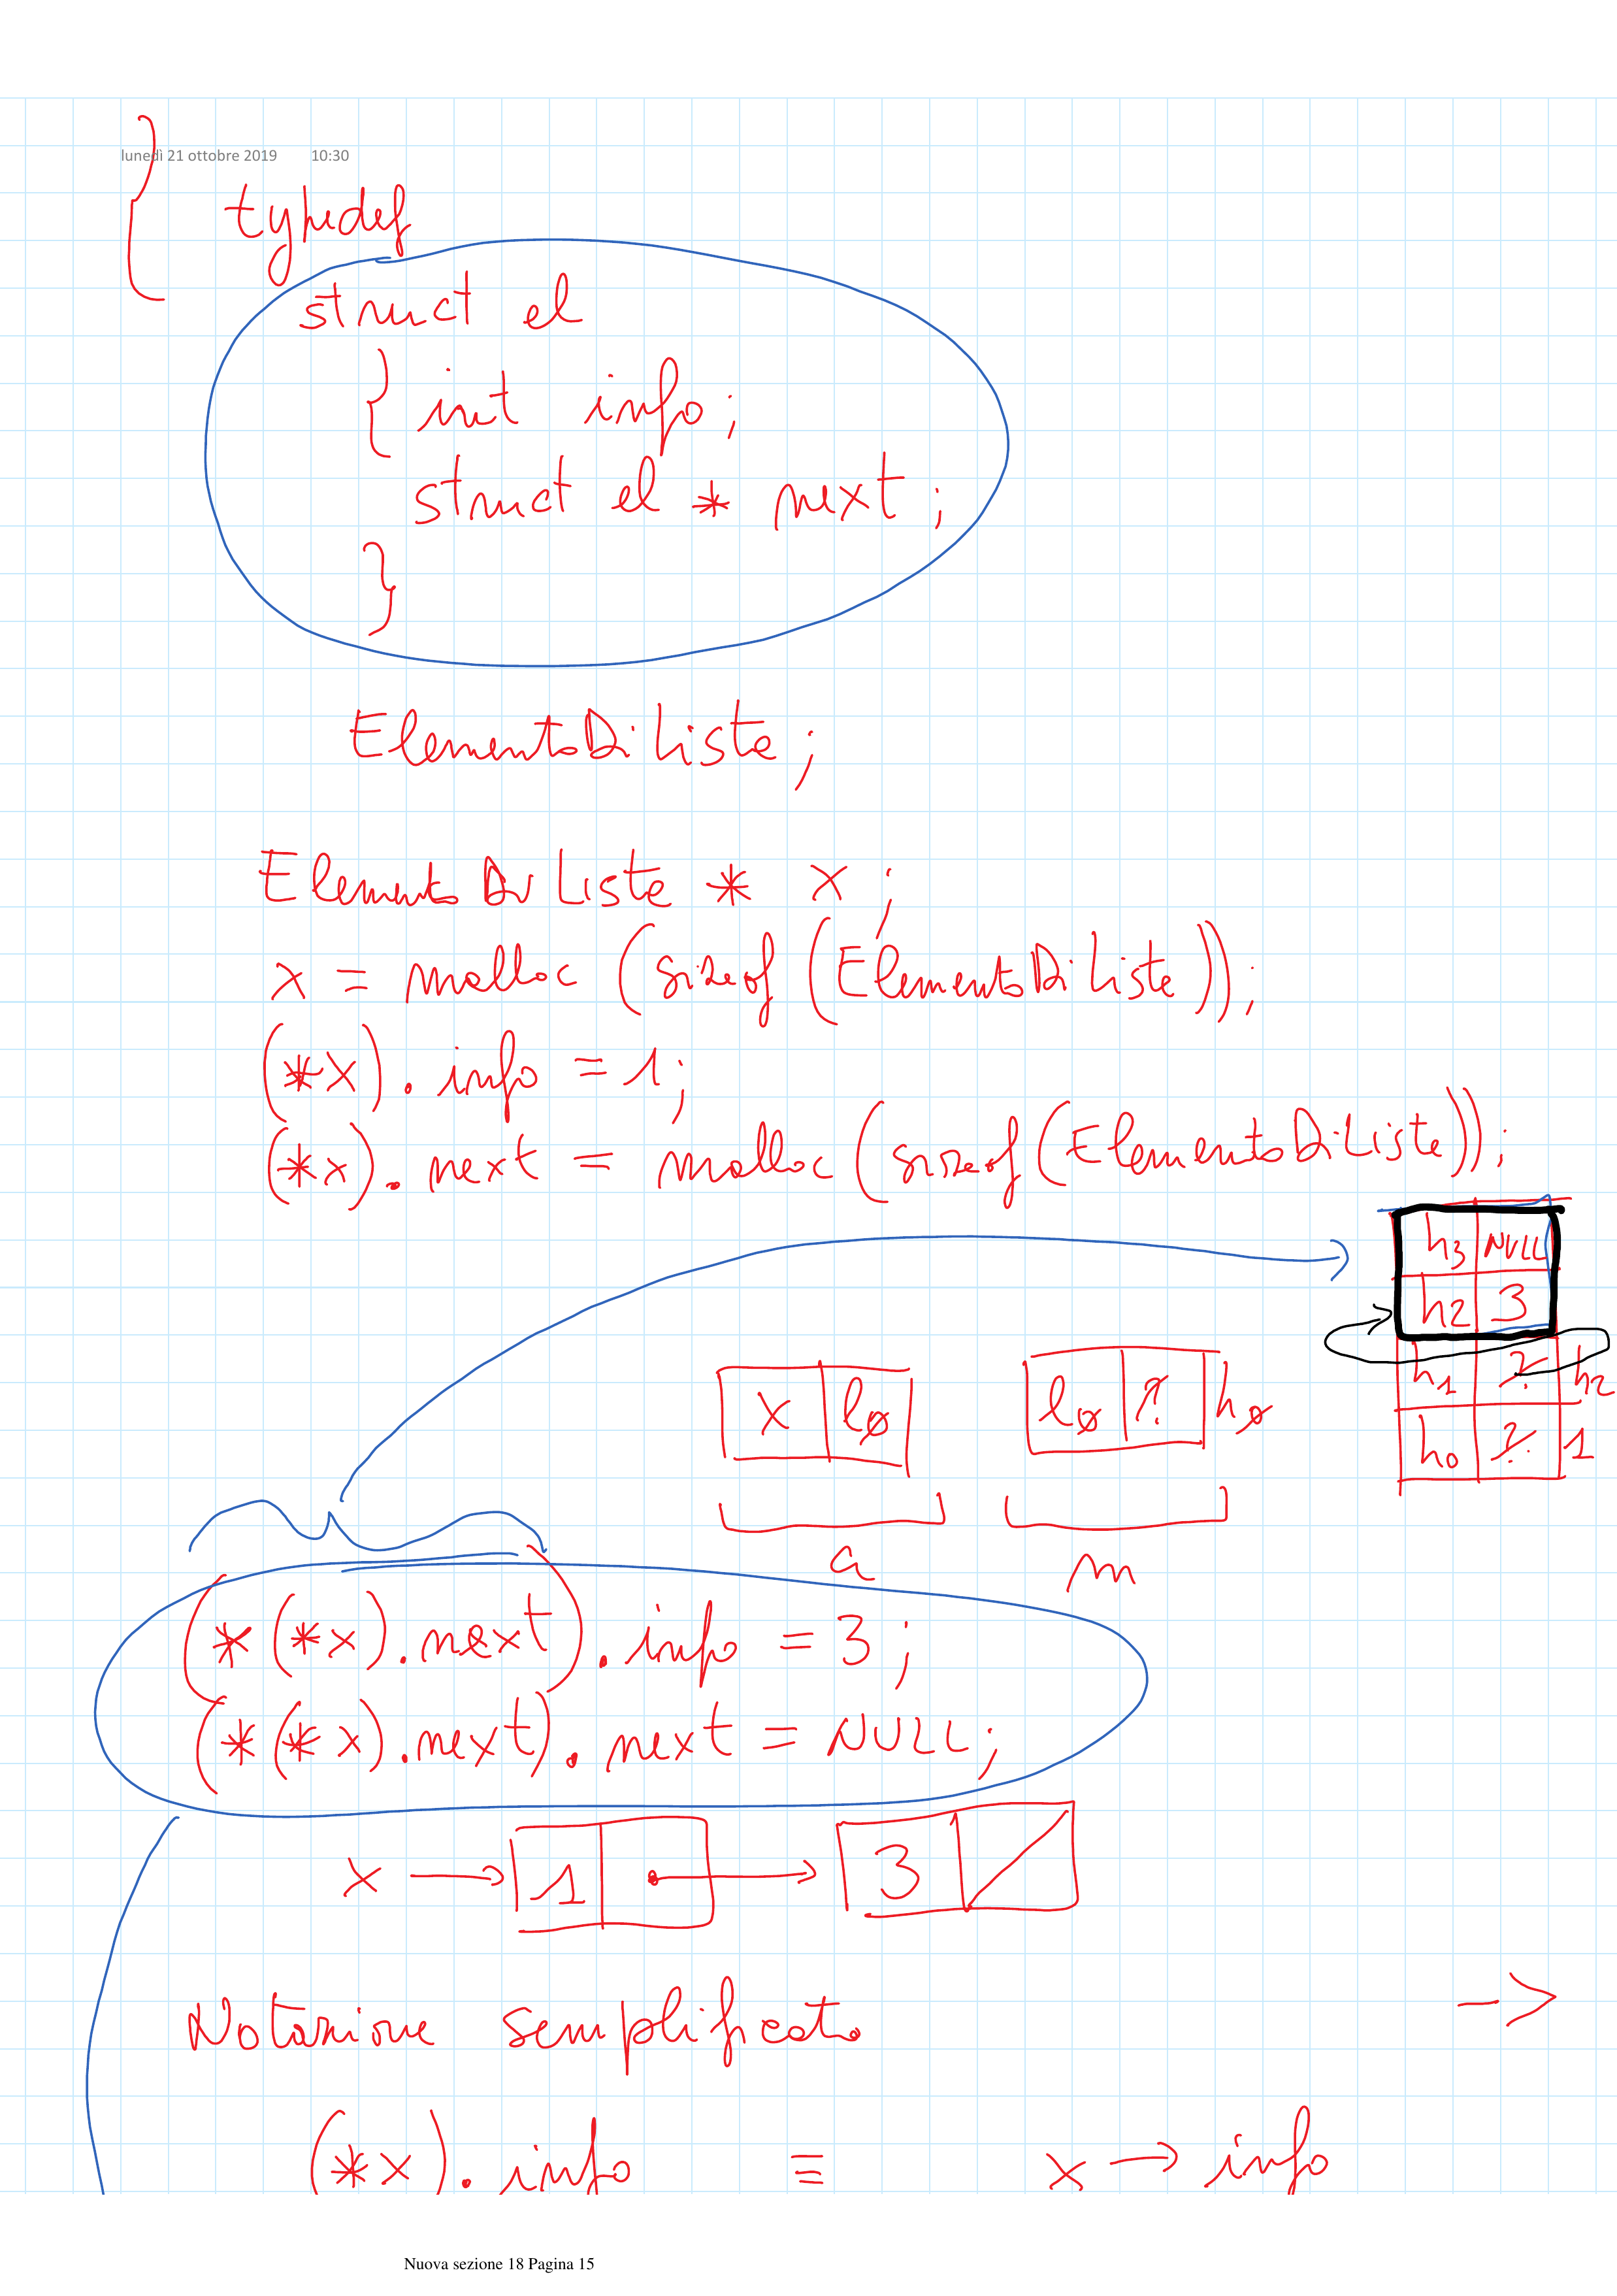 lunedì 21 ottobre 2019 10:30
{
typedef
struct el
{ int info;
struct el * next;
}
ElementoDiLista;
ElementoDiLista * x;
x = malloc (sizeof (ElementoDiLista));
(*x). info = 1;
(*x). next = malloc (sizeof (ElementoDiLista));
h3 NULL
h2 3
h1 ? h2
h0 ? 1
x l0
l0 ? h0
a m
(*(*x).next). info = 3;
(*(*x).next). next = NULL;
x → 1 → 3
Notazione semplificata ->
(*x). info ≡ x → info
Nuova sezione 18 Pagina 15